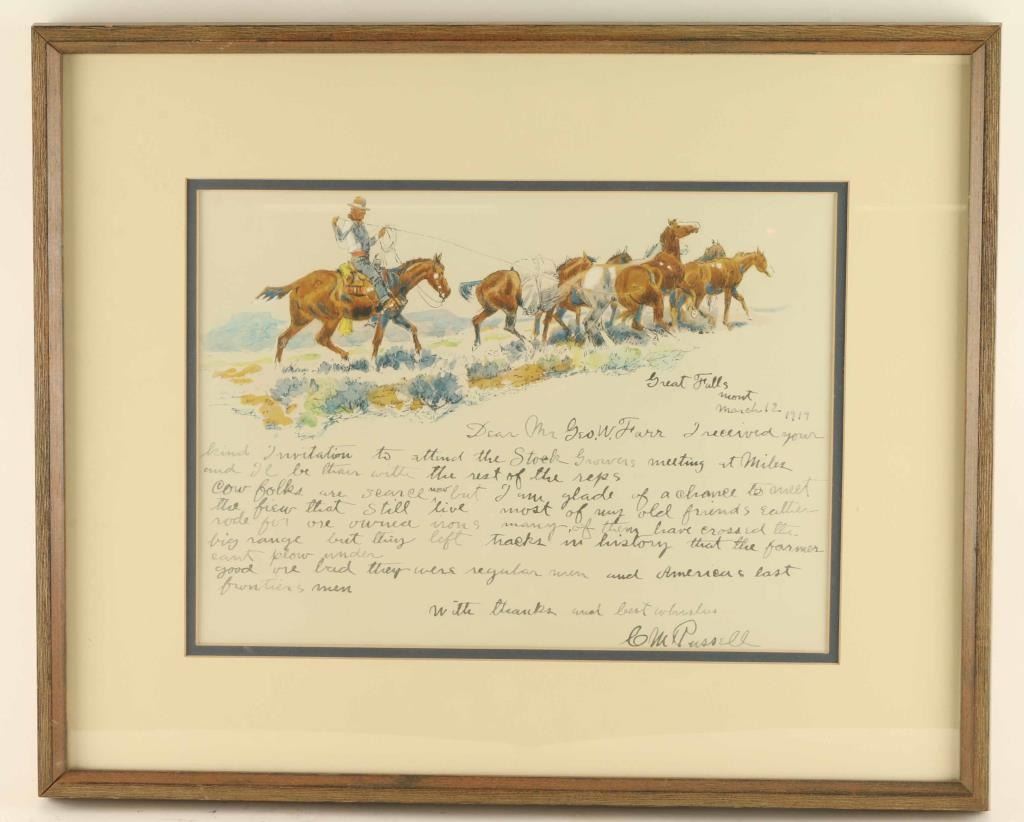 Great Falls
mont
March 12 1919
Dear Mr Geo. W. Farr I received your
kind Invitation to attend the Stock Growers meeting at Miles
and Il be thair with the rest of the reps
Cow folks are scarce now but I am glade of a chance to meet
the fiew that still live most of my old friends eather
rode for ore owned irons many of them have crossed the
big range but they left tracks in history that the farmer
cant plow under
good ore bad they were regular men and Americas last
frontiers men
With thanks and best whishes
C M Russell